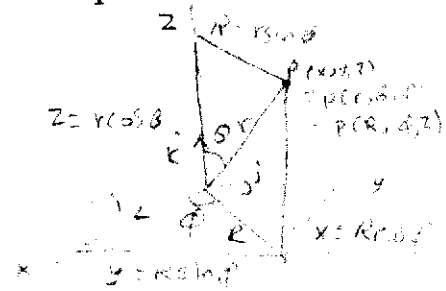 Z R = r sin θ
P(x, y, z)
= P(r, θ, φ)
= P(R, φ, z)
Z = r cos θ
θ r
k
j
y
i
φ
R
x = R cos φ
x
y = R sin φ